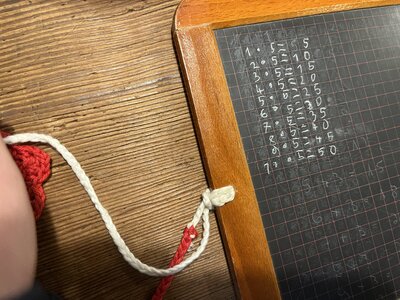 1 • 5 = 5
2 • 5 = 10
3 • 5 = 15
4 • 5 = 20
5 • 5 = 25
6 • 5 = 30
7 • 5 = 35
8 • 5 = 40
9 • 5 = 45
1 • 5 = 50